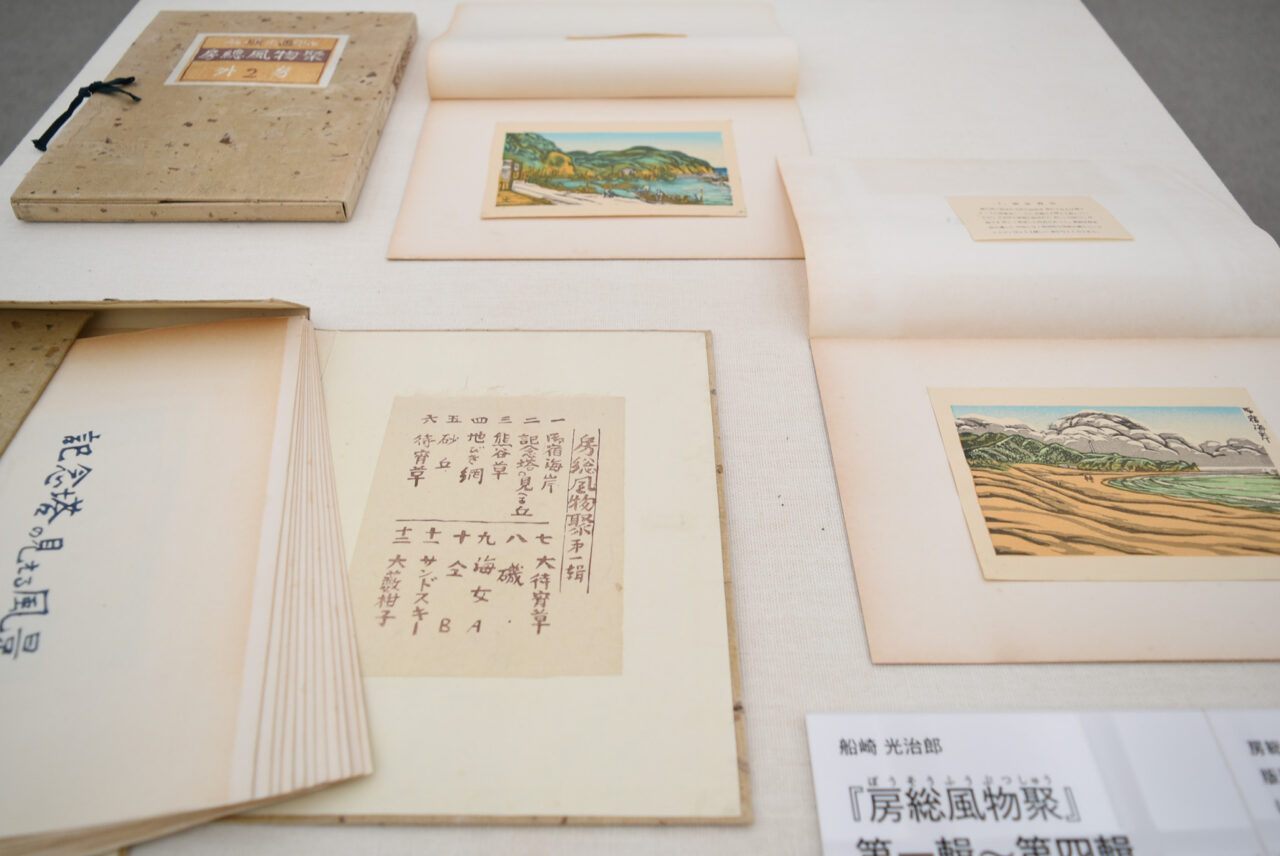 房總風物聚
外2当
房総風物聚 第一輯
一 御宿海岸
二 記念塔の見える丘
三 熊谷草
四 地びき網
五 砂丘
六 待宵草
七 大待宵草
八 磯
九 海女 A
十 仝 B
十一 サンドスキー
十二 大薮柑子
記念塔の見える風景
船崎 光治郎
ぼうそうふうぶつしゅう
『房総風物聚』
第一輯〜第四輯